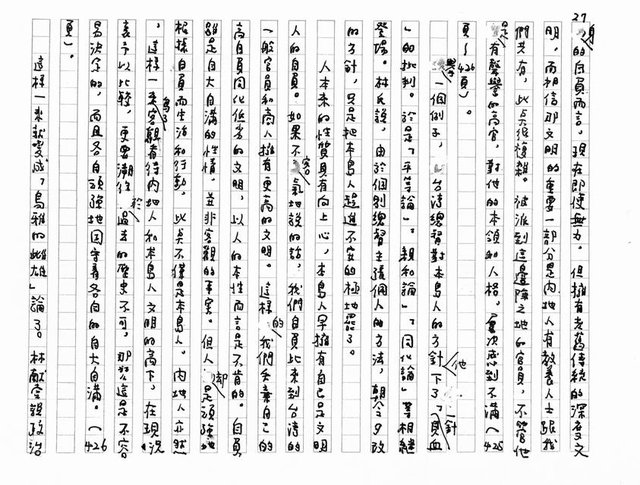 27
的自負而言。現在即使無力。但擁有老舊傳統的深奥文
明，而相信那文明的重要一部分是內地人有教養人士跟我
們共有，此点很複雜。被派到這邊陲之地的官員，不管他
是有聲譽的高官，對他的本領和人格，屢次感到不滿（425
頁～426頁）。
舉一個例子，台灣總督對本島人的方針他下了「一針見血
」的批判。於是「平等論」、「親和論」、「同化論」等相繼
登場。林氏說，由於個別總督主張個人的方法，朝令夕改
的方針，只是把本島人趕進不安的極地罷了。
人本來的性質具有向上心，本島人早擁有自己是文明
人的自負。如果不客氣地說的話，我們自負比來到台灣的
一般官員和商人擁有更高的文明。這樣的我們丟棄自己的
高自負同化低劣的文明，以人的本性而言是不肯的。自負
雖是自大自滿的性情，並非客觀的事實。但人卻是頑強地
根據自負而生活和行動，此点不僅是本島人。內地人亦然
，這樣一來為了客觀看待內地人和本島人文明的高下，在現況
表予以比較，更要溯作於過去的歷史不可，那麼這是不容
易決定的，而且各自頑強地固守着各自的自大自滿。（426
頁）。
這樣一來就變成「烏鴉的雌雄」論了。林獻堂親政治